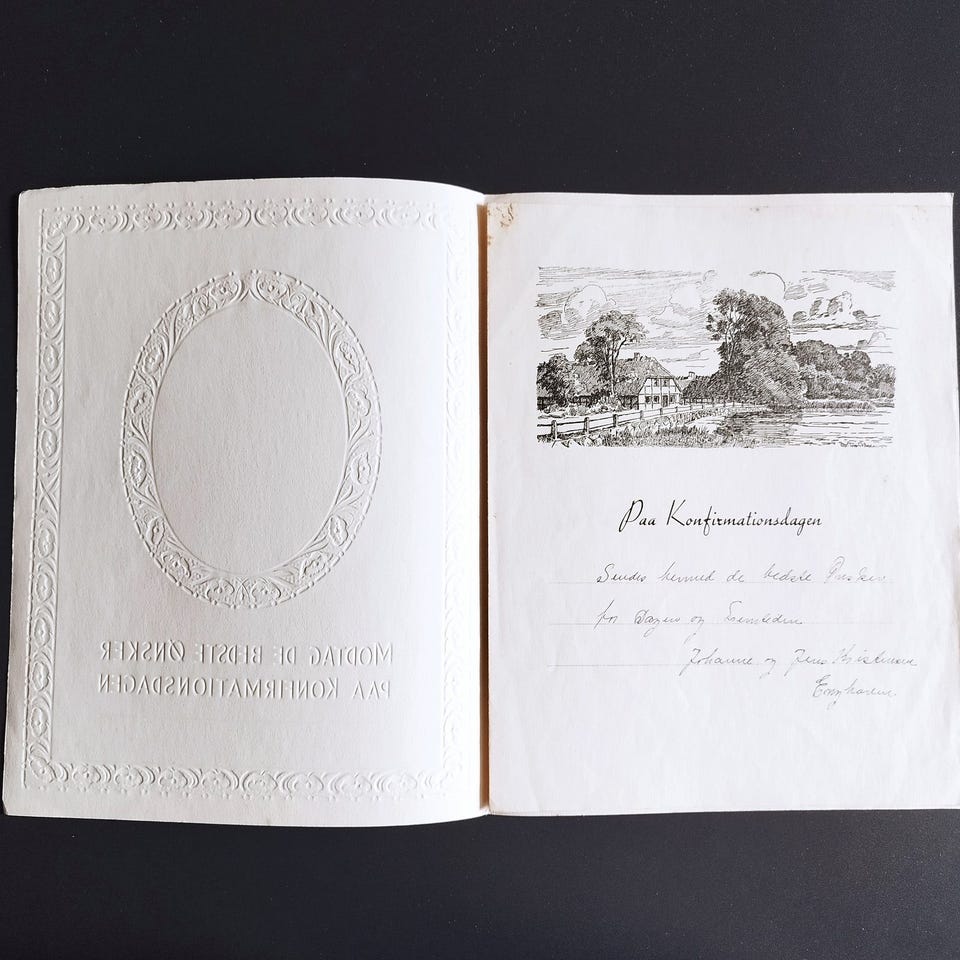 MODTAG DE BEDSTE ØNSKER
PAA KONFIRMATIONSDAGEN
Paa Konfirmationsdagen
Sendes hermed de bedste Ønsker
for Dagen og Fremtiden
Johanne og Jens Kristensen